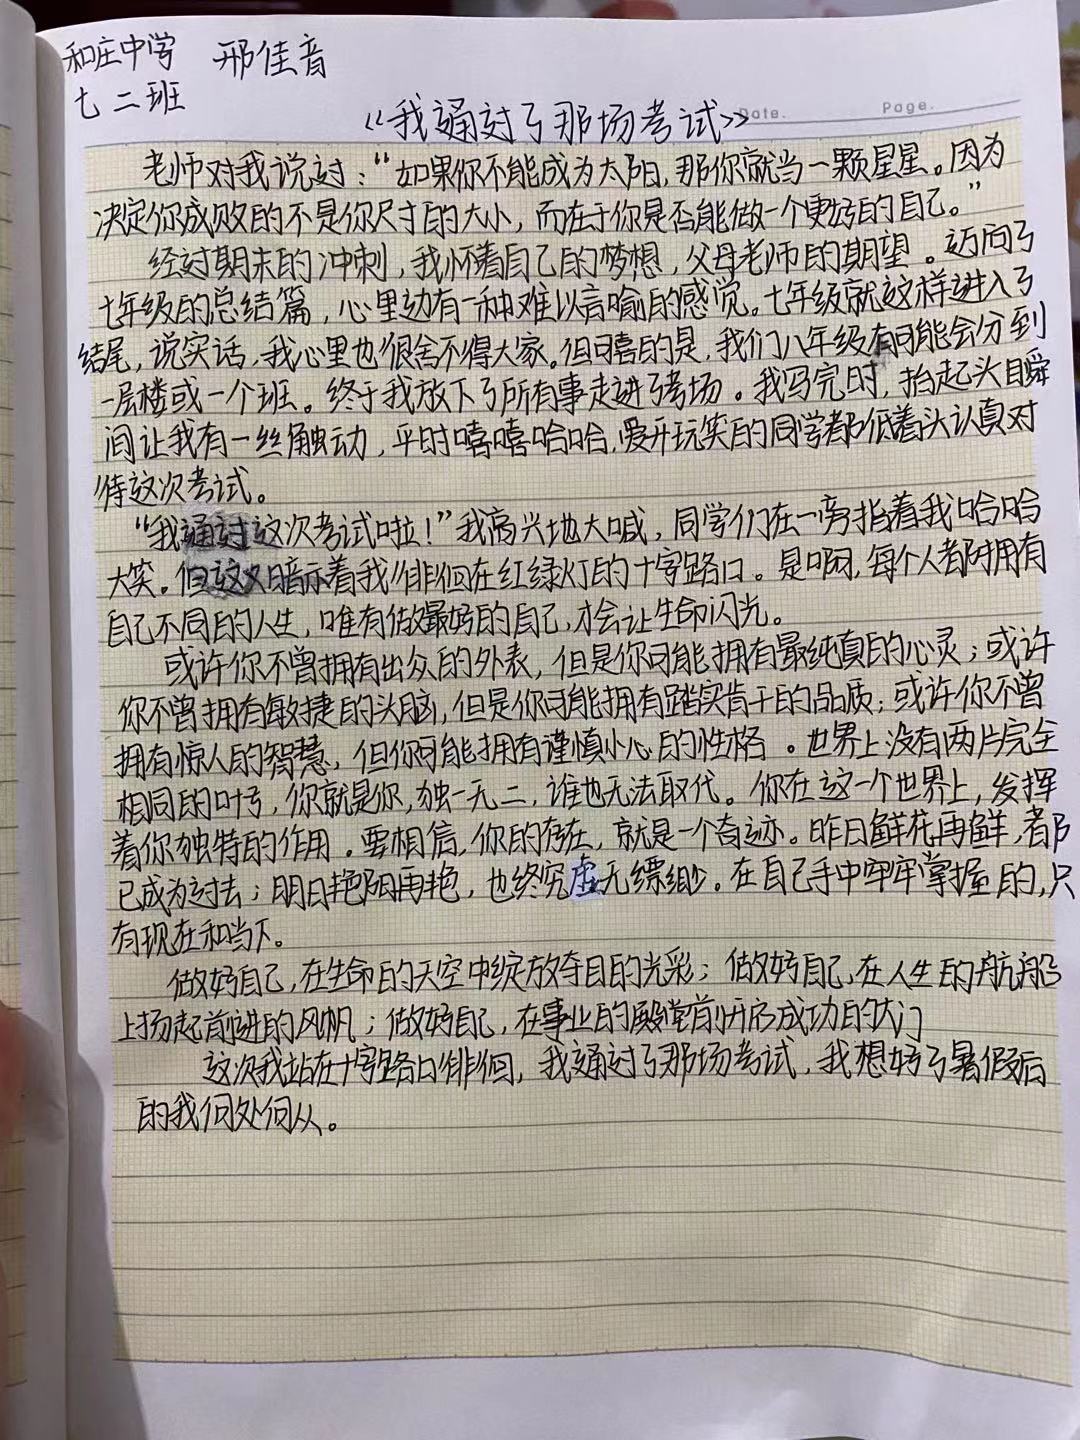 和庄中学 邢佳音
七 二班
Date. Page.
《我通过了那场考试》
老师对我说过：“如果你不能成为太阳，那你就当一颗星星。因为
决定你成败的不是你尺寸的大小，而在于你是否能做一个更好的自己。”
经过期末的冲刺，我怀着自己的梦想，父母老师的期望。迈向了
七年级的总结篇，心里边有一种难以言喻的感觉。七年级就这样进入了
结尾，说实话，我心里也很舍不得大家。但可喜的是，我们八年级有可能会分到
一层楼或一个班。终于我放下了所有事走进了考场。我写完时，抬起头目瞬
间让我有一丝触动，平时嘻嘻哈哈，爱开玩笑的同学都低着头认真对
待这次考试。
“我通过这次考试啦！”我高兴地大喊，同学们在一旁指着我哈哈
大笑。但这又暗示着我徘徊在红绿灯的十字路口。是啊，每个人都拥有
自己不同的人生，唯有做最好的自己，才会让生命闪光。
或许你不曾拥有出众的外表，但是你可能拥有最纯真的心灵；或许
你不曾拥有敏捷的头脑，但是你可能拥有踏实肯干的品质；或许你不曾
拥有惊人的智慧，但你可能拥有谨慎小心的性格。世界上没有两片完全
相同的叶子，你就是你，独一无二，谁也无法取代。你在这一个世界上，发挥
着你独特的作用。要相信，你的存在，就是一个奇迹。昨日鲜花再鲜，都
已成为过去；明日艳阳再艳，也终究虚无缥缈。在自己手中牢牢掌握的，只
有现在和当下。
做好自己，在生命的天空中绽放夺目的光彩；做好自己，在人生的航船
上扬起前进的风帆；做好自己，在事业的殿堂前开启成功的大门
这次我站在十字路口徘徊，我通过了那场考试，我想好了暑假后
的我何处何从。